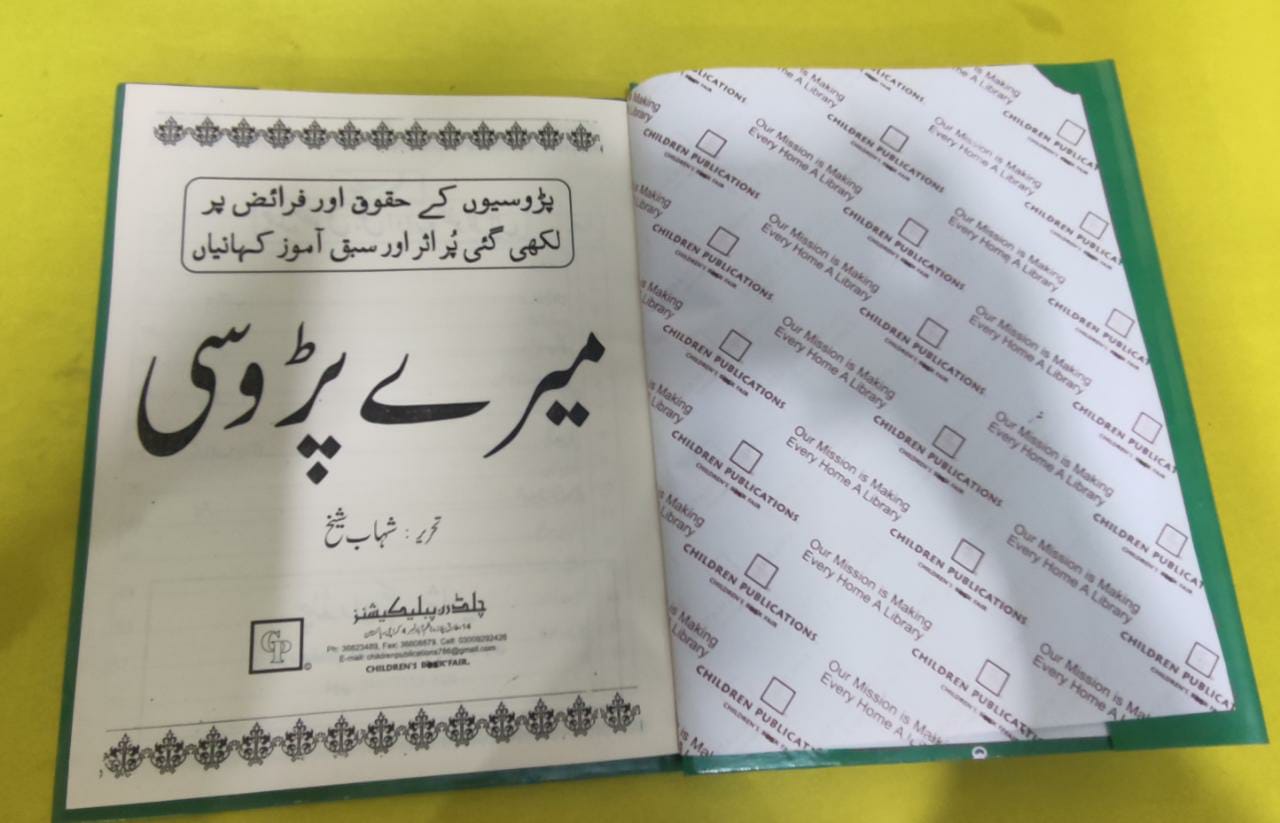 پڑوسیوں کے حقوق اور فرائض پر
لکھی گئی پُر اثر اور سبق آموز کہانیاں
میرے پڑوسی
تحریر : شہاب شیخ
چلڈرن پبلیکیشنز
Ph: 36623489, Fax: 36606679, Cell: 03009292426
E-mail: childrenpublications786@gmail.com
CHILDREN'S BOOK FAIR.
GP
©
Our Mission is Making
Every Home A Library
CHILDREN PUBLICATIONS
CHILDREN'S BOOK FAIR